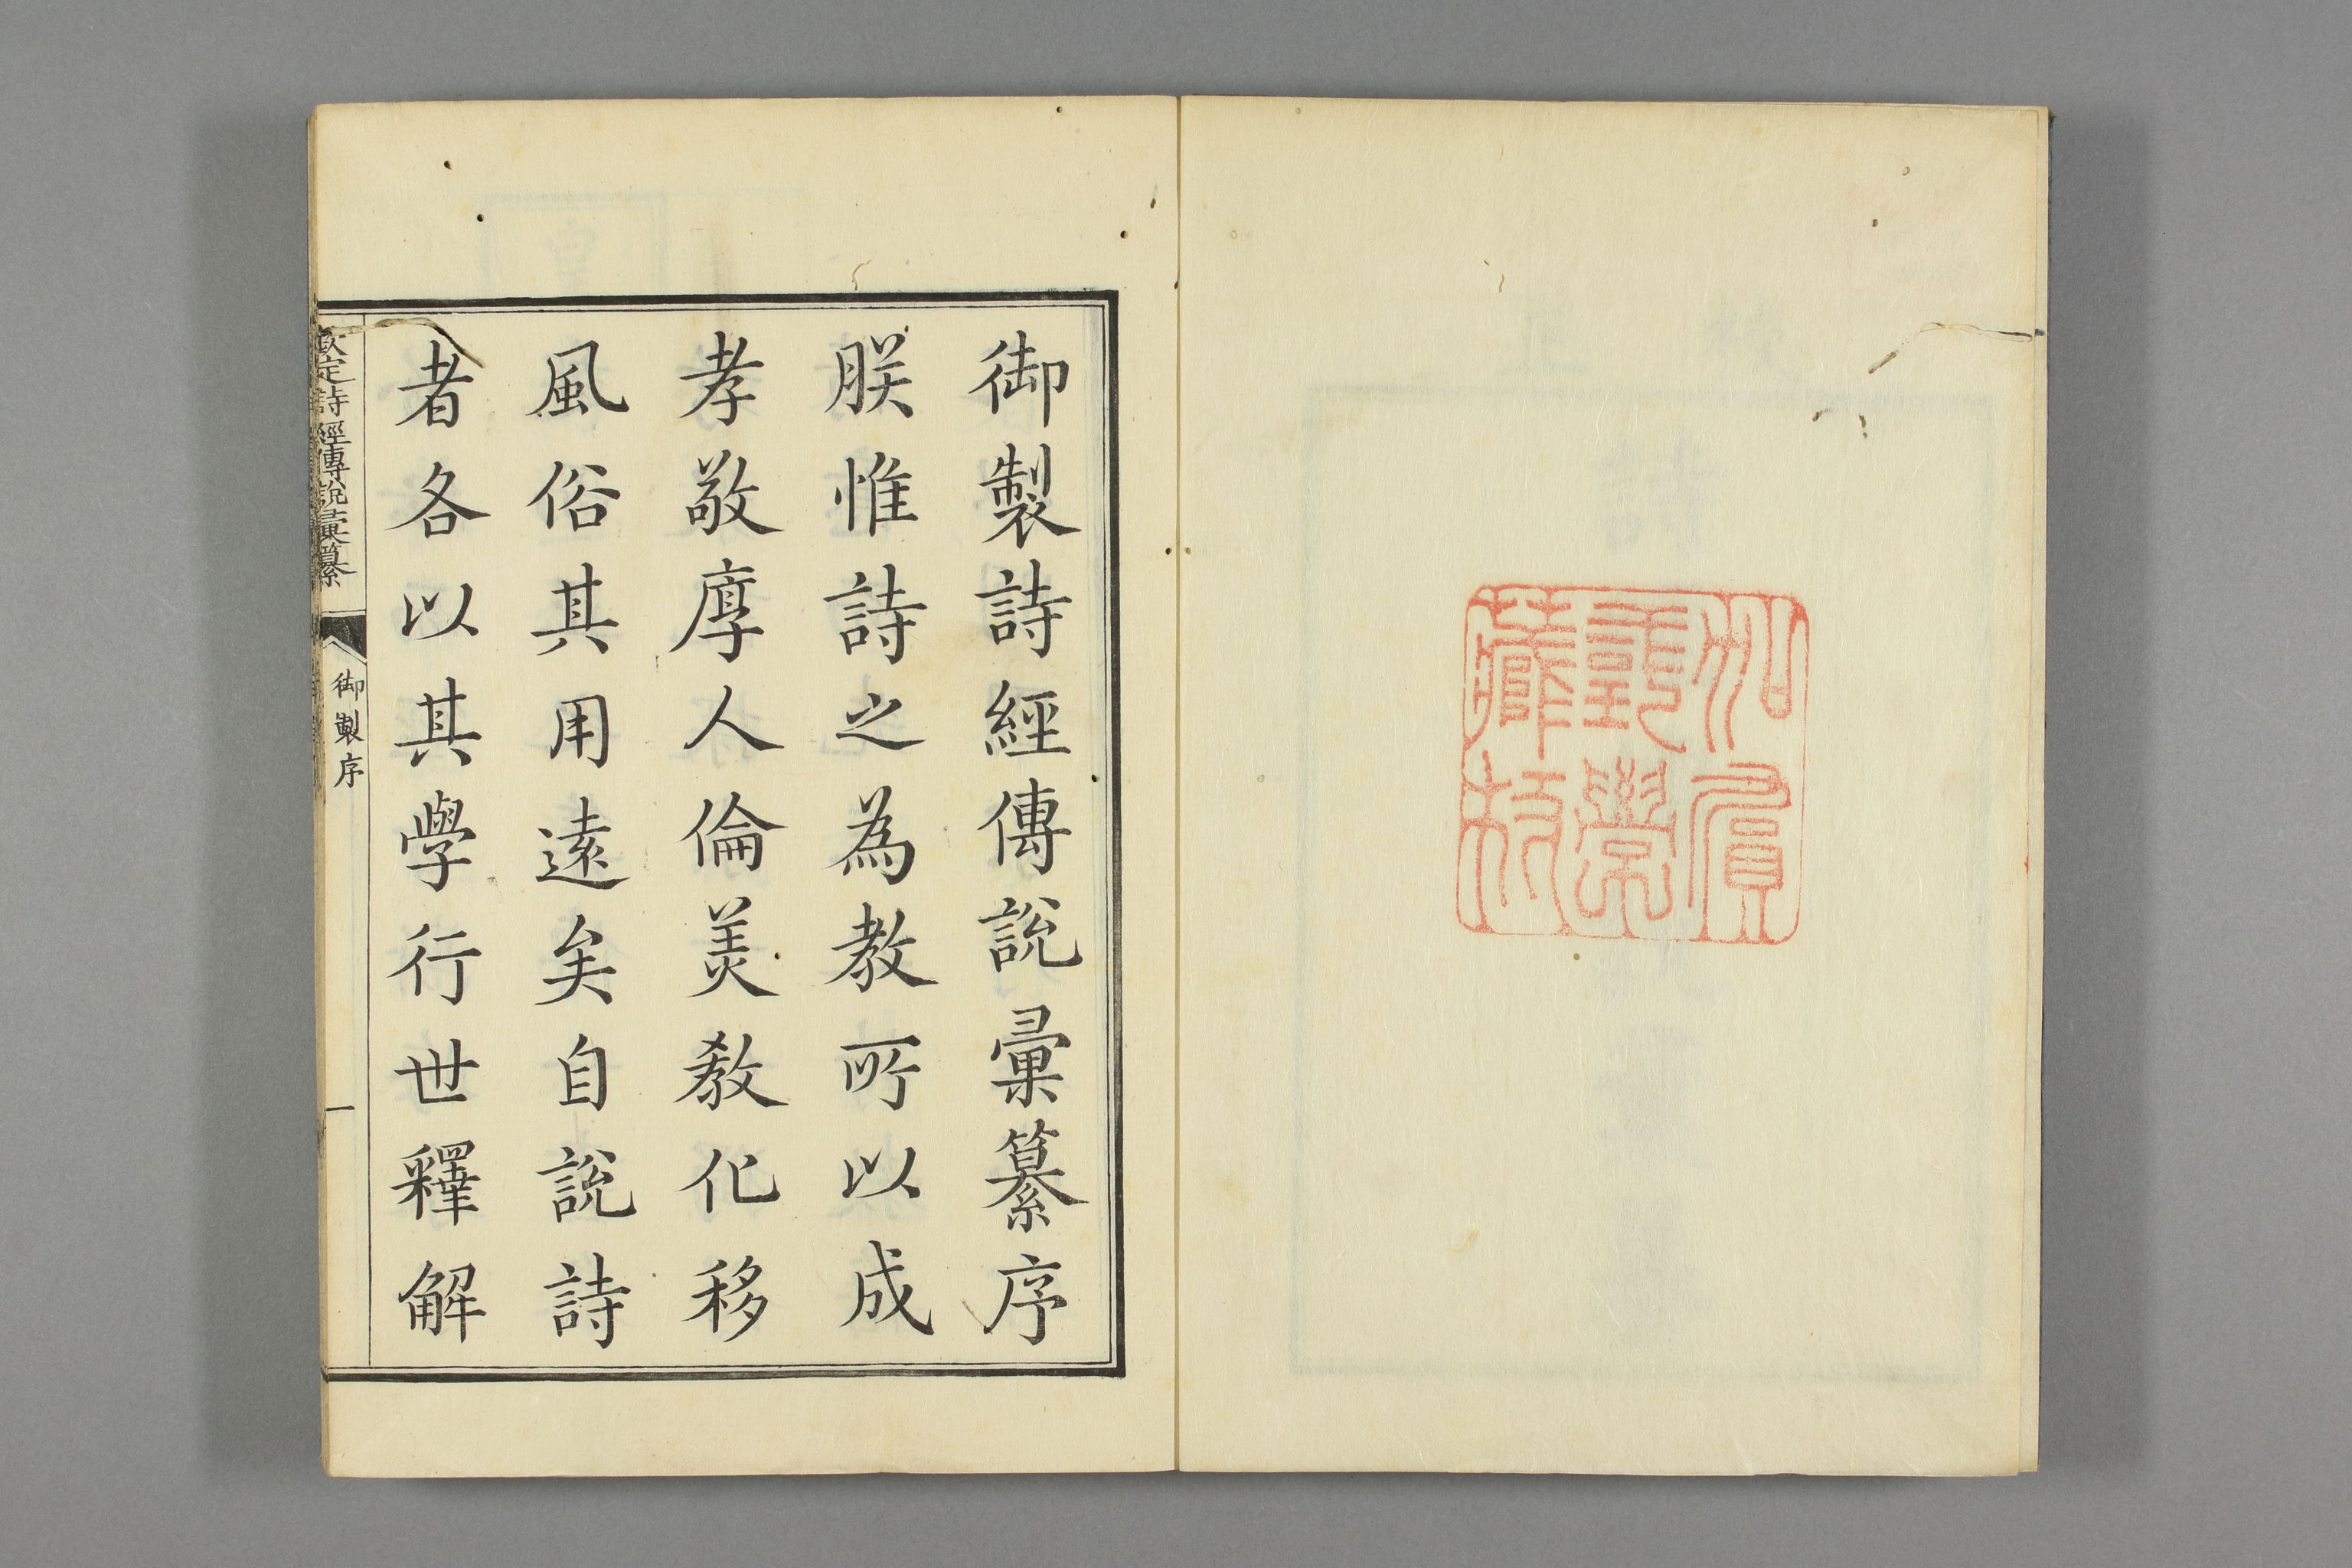 加賀
學
藏板
御製詩經傳說彙纂序
朕惟詩之為教所以成
孝敬厚人倫美教化移
風俗其用遠矣自說詩
者各以其學行世釋解
欽定詩經傳說彙纂
御製序
一